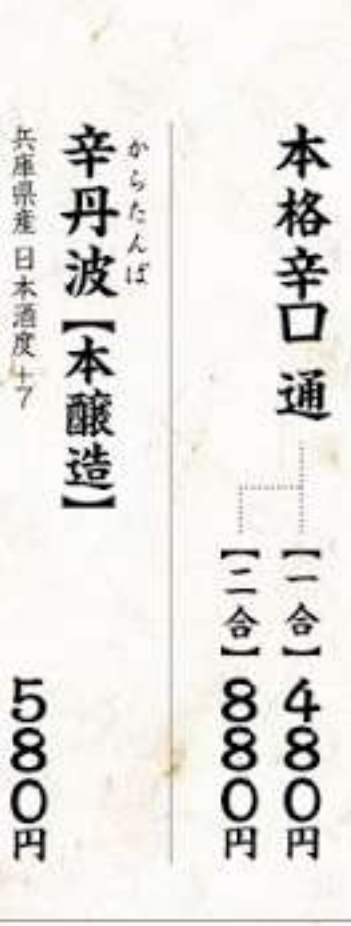 本格辛口 通
【一合】480円
【二合】880円
からたんば
辛丹波【本醸造】
兵庫県産 日本酒度+7
580円